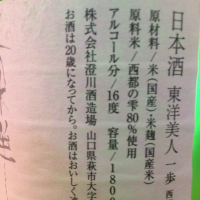 日本酒 東洋美人 一歩 西
原材料/米(国産)・米麹(国産米)
原料米/西都の雫80%使用
アルコール分/16度 容量/1800
株式会社澄川酒造場 山口県萩市大字
お酒は20歳になってから。お酒はおいしく